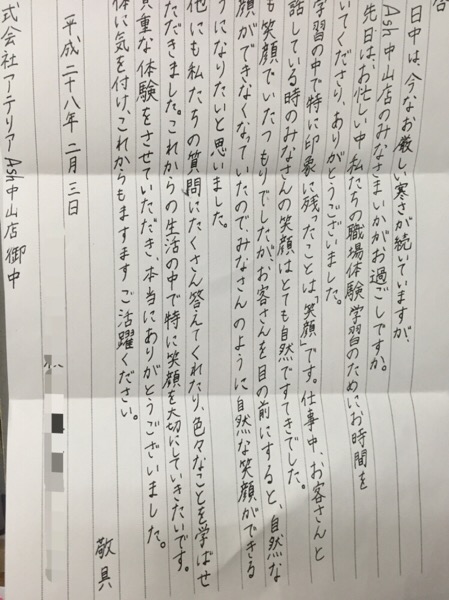 日中は、今なお厳しい寒さが続いていますが、
Ash中山店のみなさまいかがお過ごしですか。
先日は、お忙しい中 私たちの職場体験学習のために、お時間を
いてくださり、ありがとうございました。
学習の中で特に印象に残ったことは「笑顔」です。仕事中、お客さんと
話している時のみなさんの笑顔はとても自然ですてきでした。
も笑顔でいたつもりでしたが、お客さんを目の前にすると、自然な
顔ができなくなっていたのでみなさんのように自然な笑顔ができる
うになりたいと思いました。
他にも私たちの質問にたくさん答えてくれたり、色々なことを学ばせ
ただきました。これからの生活の中で特に笑顔を大切にしていきたいです。
重な体験をさせていただき、本当にありがとうございました。
体に気を付け、これからもますますご活躍ください。
敬具
平成二十八年 二月 三日
式会社アテリア Ash中山店 御中